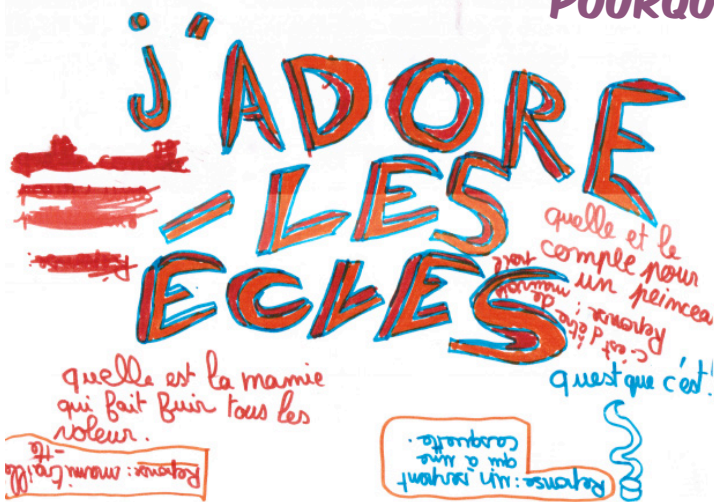 POURQU
j'ADORE
-LES
ECLES
quelle et le
comple pour
un peincea
Reponse : c'est d'être
de mauvais
poil
quelle est la mamie
qui fait fuir tous les
voleur.
Reponse : mami traille
-tte
quest que c'est?
Reponse : un serpent
qui a une
casquette.